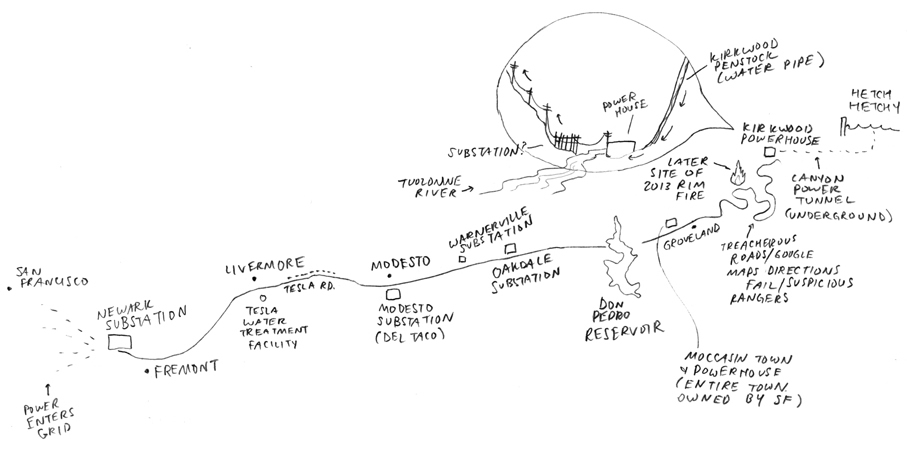 KIRKWOOD
PENSTOCK
(WATER PIPE)
POWER
HOUSE
SUBSTATION?
TUOLOMNE
RIVER
HETCH
HETCHY
KIRKWOOD
POWERHOUSE
LATER
SITE OF
2013 RIM
FIRE
CANYON
POWER
TUNNEL
(UNDERGROUND)
TREACHEROUS
ROADS/GOOGLE
MAPS DIRECTIONS
FAIL/SUSPICIOUS
RANGERS
GROVELAND
WARNERVILLE
SUBSTATION
OAKDALE
SUBSTATION
DON
PEDRO
RESERVOIR
MOCCASIN TOWN
& POWERHOUSE
(ENTIRE TOWN
OWNED BY SF)
MODESTO
MODESTO
SUBSTATION
(DEL TACO)
LIVERMORE
TESLA RD.
TESLA
WATER
TREATMENT
FACILITY
SAN
FRANCISCO
NEWARK
SUBSTATION
FREMONT
POWER
ENTERS
GRID